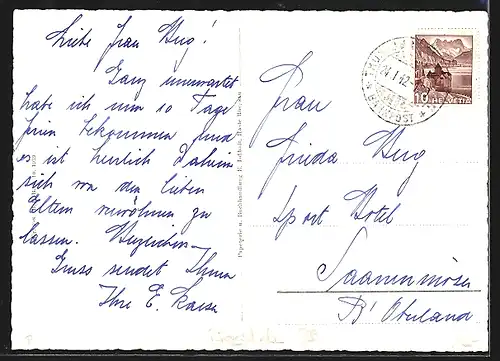 Liebe Frau Hug!
Ganz unerwartet
habe ich nun 10 Tage
frei bekommen und
es ist herrlich Daheim
sich von den lieben
Eltern verwöhnen zu
lassen. Herzlichen
Gruss sendet Ihnen
Ihre E. Kaiser
Papeterie u. Buchhandlung
Frau
Frieda Hug
Sport Hotel
Saanenmöser
B' Oberland
10 HELVETIA